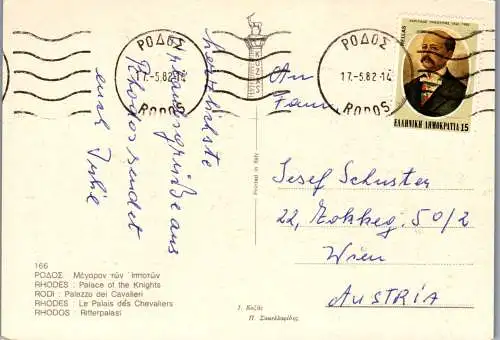 ΡΟΔΟΣ
17.-5.82.14
RODOS
ΡΟΔΟΣ
17.-5.82.14
RODOS
HELLAS
ΕΛΛΗΝΙΚΗ ΔΗΜΟΚΡΑΤΙΑ 15
herzlichste
Urlaubsgrüße aus
Rhodos sendet
euch
An
Fam.
Josef Schuster
22, 50/2
Wien
AUSTRIA
Printed in Italy
166
ΡΟΔΟΣ Μέγαρον τῶν Ἱπποτῶν
RHODES : Palace of the Knights
RODI : Palazzo dei Cavalieri
RHODES : Le Palais des Chevaliers
RHODOS : Ritterpalast
Ι. Κοζᾶς
Π. Σακελλαρίδης